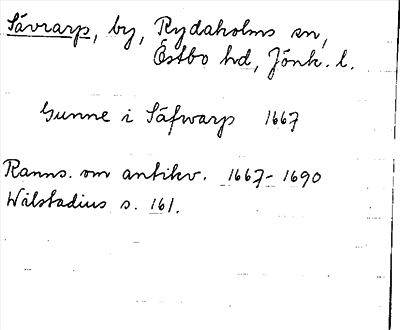 Sävrarp, by, Rydaholms sn,
Östbo hd, Jönk. l.
Gunne i Säfwarp 1667
Ranns. om antikv. 1667-1690
Wålstadius s. 161.